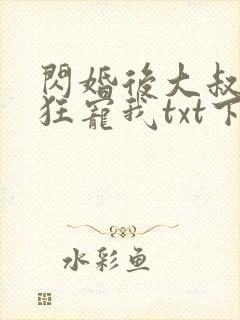 閃婚後大叔
狂寵我txt下
水彩鱼